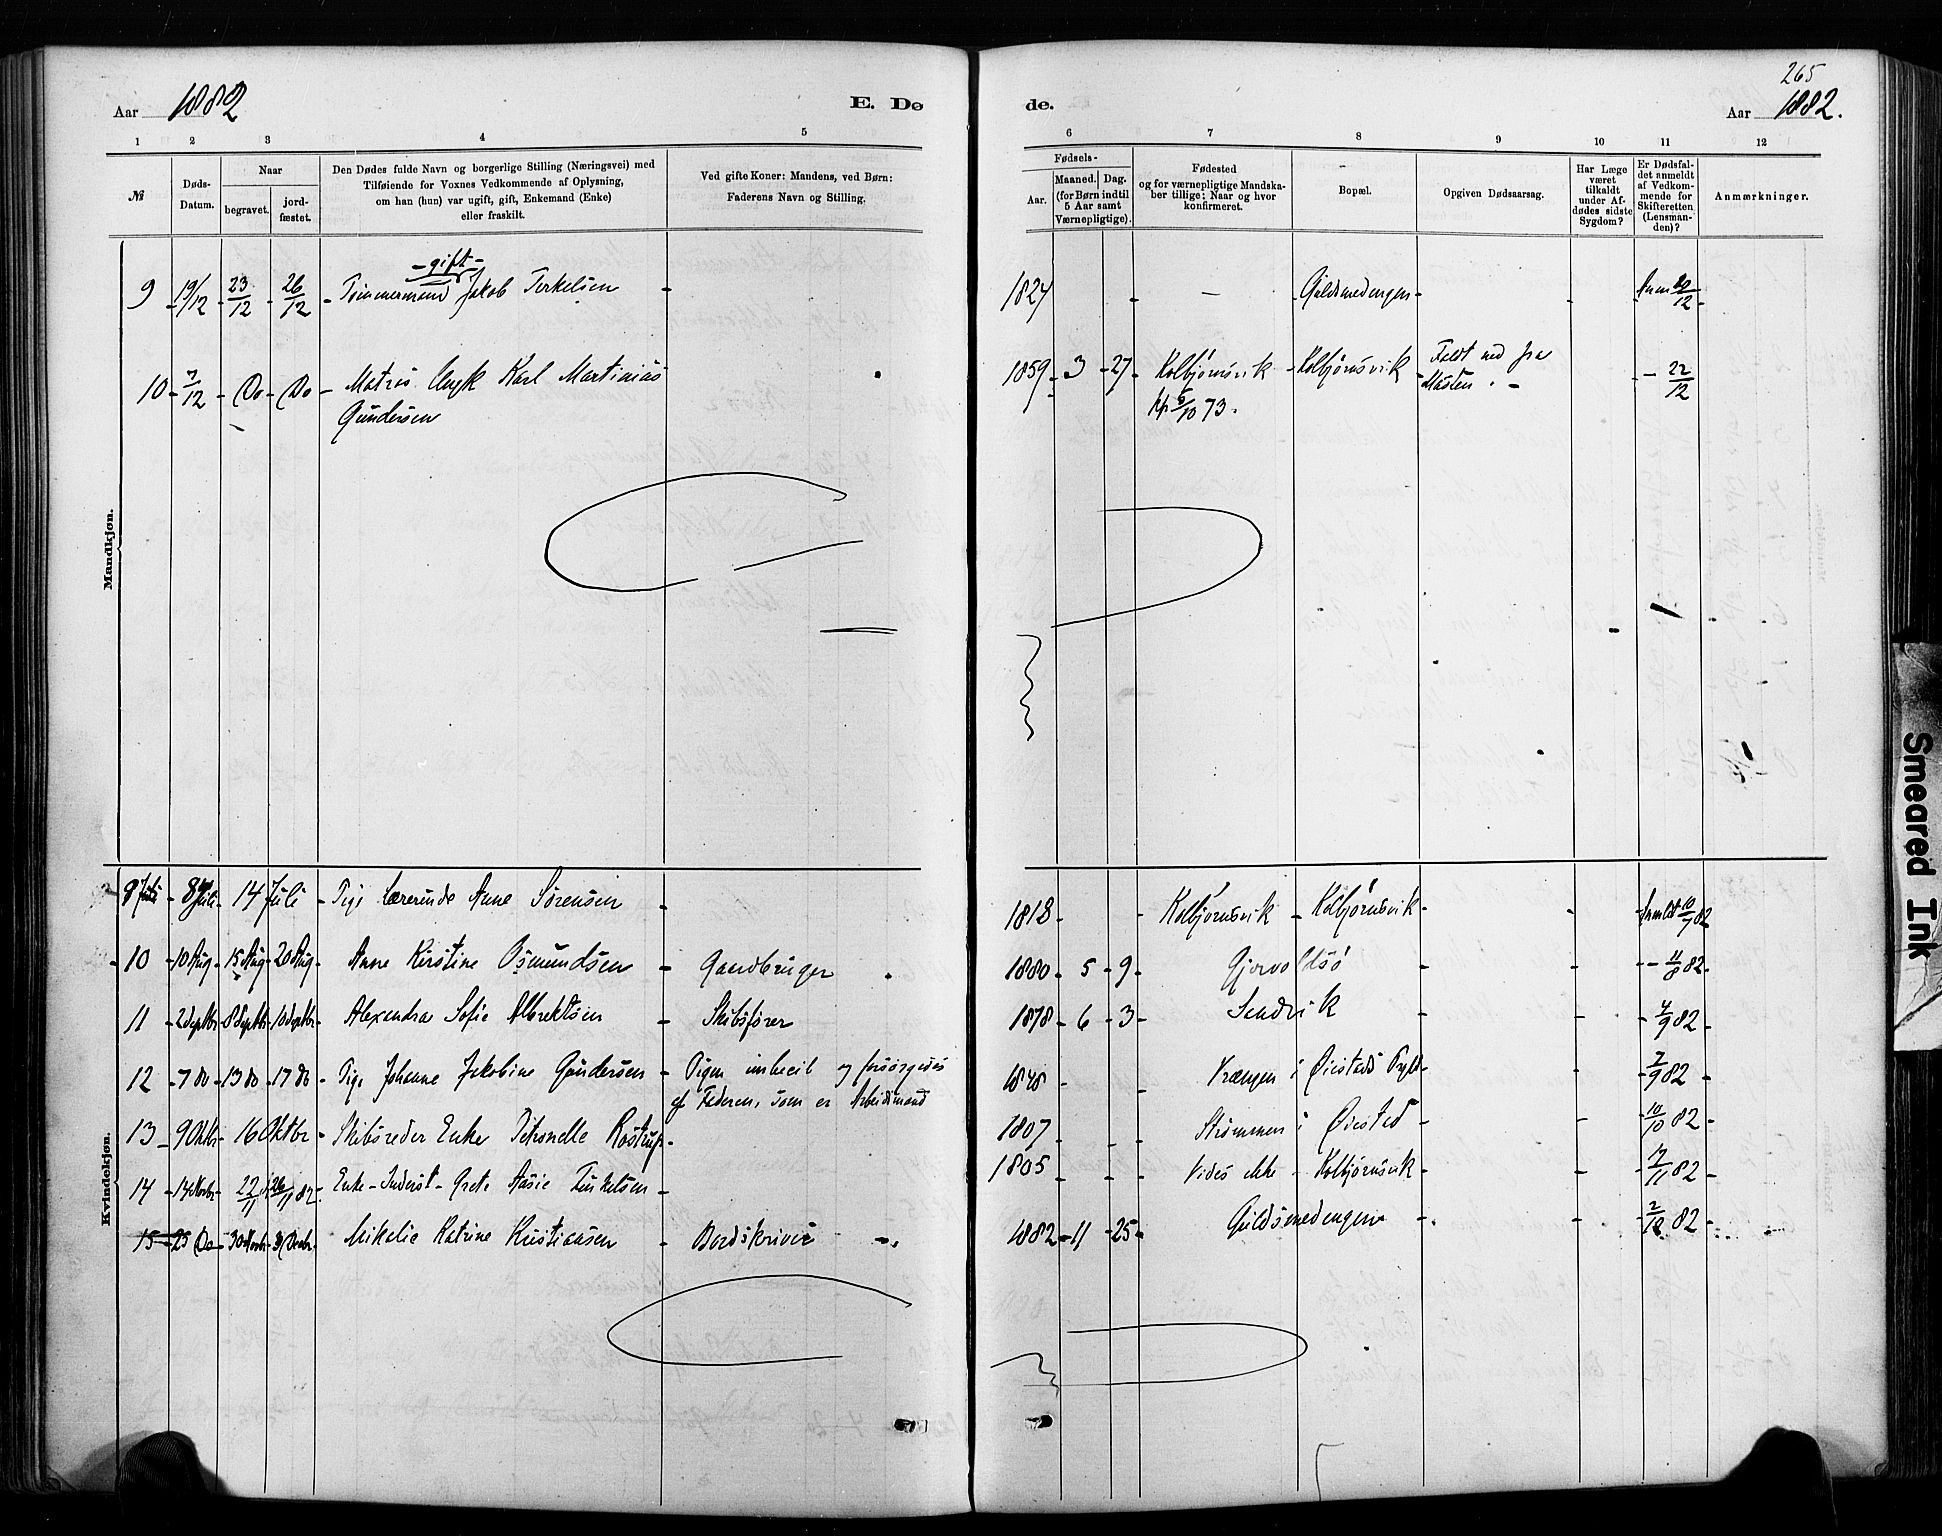 265
Aar 1882 E. Dø de. Aar 1882.
1 2 3 4 5 6 7 8 9 10 11 12
№
Døds-
Datum.
Naar
begravet.
jord-
fæstet.
Den Dødes fulde Navn og borgerlige Stilling (Næringsvei) med
Tilføiende for Voxnes Vedkommende af Oplysning,
om han (hun) var ugift, gift, Enkemand (Enke)
eller fraskilt.
Ved gifte Koner: Mandens, ved Børn:
Faderens Navn og Stilling.
Fødsels-
Aar.
Maaned. Dag.
(for Børn indtil
5 Aar samt
Værnepligtige).
Fødested
og for værnepligtige Mandska-
ber tillige: Naar og hvor
konfirmeret.
Bopæl.
Opgiven Dødsaarsag.
Har Læge
været
tilkaldt
under Af-
dødes sidste
Sygdom?
Er Dødsfal-
det anmeldt
af Vedkom-
mende for
Skifteretten
(Lensman-
den)?
Anmærkninger.
Mandkjøn.
- gift -
9 - 19/12 - 23/12 - 26/12 - Tømmermand Jakob Terkelsen - 1824 - — Guldsmedengen - 20/12 -
10 - 7/12 - Do - Do - Matros Ungk Karl Martinius 1859 - 3 - 27 - Kolbjørnsvik - Kolbjørnsvik - Faldt ned fra - 22/12
Gundersen 6/10 73. Masten. -
Kvindekjøn.
8 Juli - 8 Juli - 14 Juli - Pige Lærerinde Anne Sørensen - 1818 - Kolbjørnsvik - Kolbjørnsvik - Anmldt 10/7 82
10 - 10 Aug - 15 Aug - 20 Aug - Anne Kirstine Osmundsen - Gaardbruger 1880 - 5 - 9 - Gjervoldsø - - 11/8 82 -
11 - 2 Septbr - 8 Septbr - 10 Septbr - Alexandra Sofie Albrektsen - Skibsfører 1878 - 6 - 3 - Sandvik - - 4/9 82 -
12 - 7 do - 13 do - 17 do - Pige Johanne Jakobine Gundersen - Pigen imbecil og forsørgedes 1848 - Vrængen i Øiestads Prgld - 7/9 82
af Faderen, som er Arbeidsmand
13 - 9 Oktbr - 16 Oktbr - Skibsreder Enke Petronelle Rostrup - 1807 - Strømmen i Øiestad - 10/10 82 -
14 - 14 Novbr - 22/11 - 26/11 82 - Enke - Inderst - Grete Aasie Terkelsen - 1805 - Vides ikke - Kolbjørnsvik - 17/11 82 -
15 - 25 Do - 30 Novbr - 3 Decbr - Mikelie Katrine Kristiansen - Bordskriver - 1882 - 11 - 25 - Guldsmedengen - 2/12 82 -
Smeared Ink